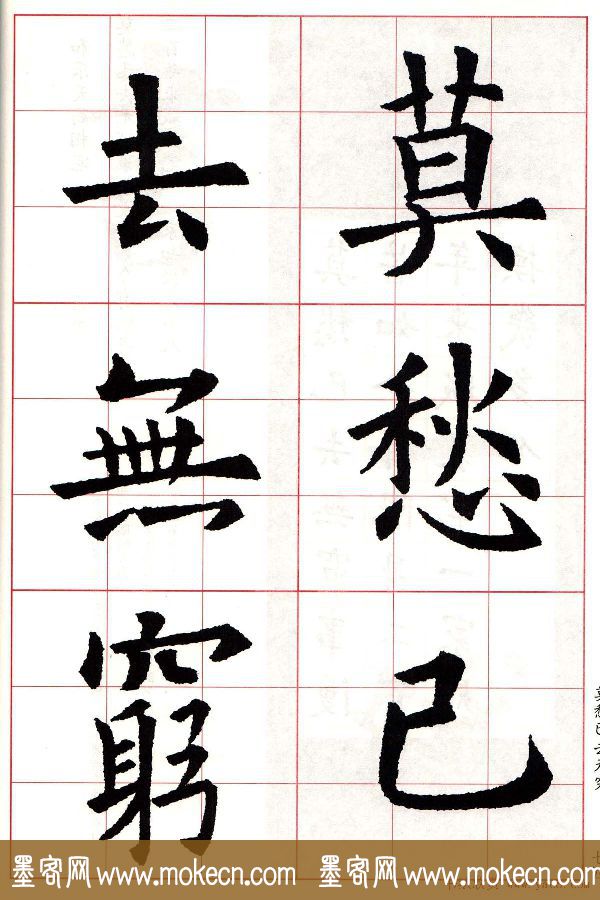 莫愁已
去無窮
莫愁已去无穷
墨客网 www.mokecn.com 墨客网 www.mokecn.com